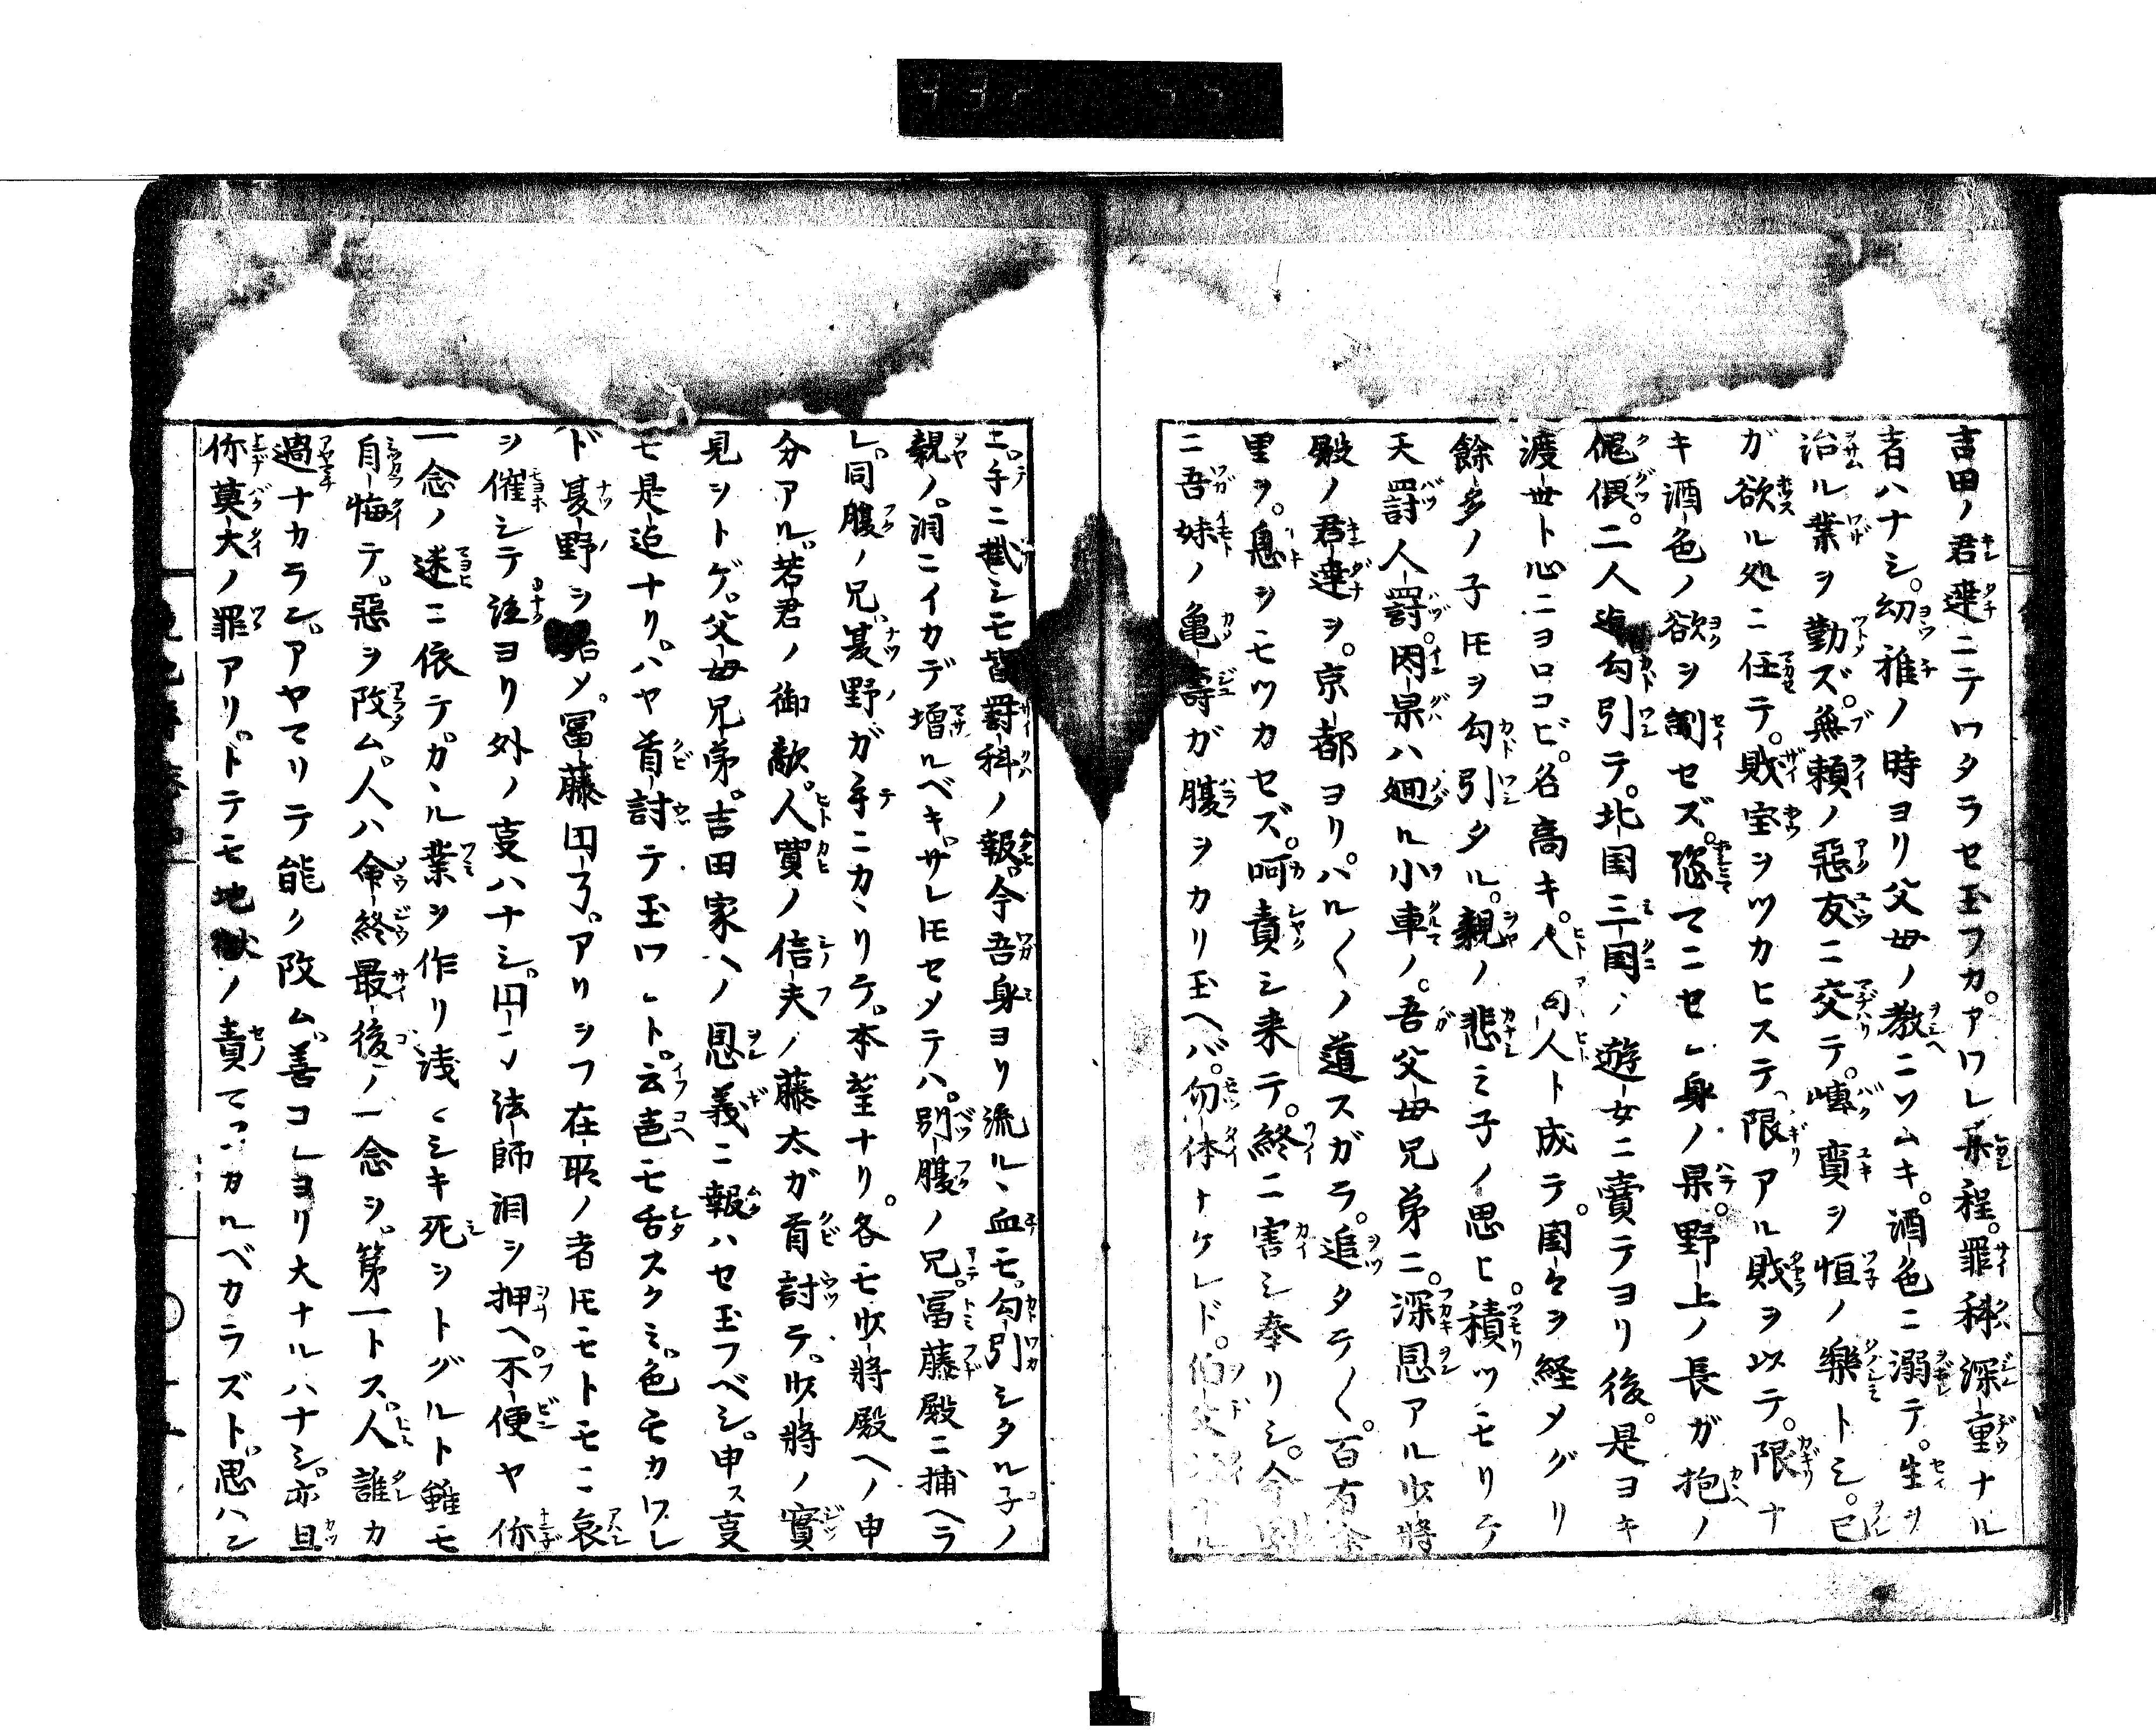 吉田ノ君達ニテワタラセ玉フカ。アワレ某程。罪科深重ナル
者ハナシ。幼稚ノ時ヨリ父母ノ教ニソムキ。酒色ニ溺テ。生ヲ
治ル業ヲ勤ズ。無頼ノ惡友ニ交テ。博奕ヲ恒ノ樂トシ。己
ガ欲ル処ニ任テ。敗宝ヲツカヒステ。限アル敗ヲ以テ。限ナ
キ酒色ノ欲ヲ制セズ。恣マニセシ身ノ果。野上ノ長ガ抱ノ
傀儡。二人迠勾引テ。北国三国ノ遊女ニ賣テヨリ後。是ヨキ
渡世ト心ニヨロコビ。名高キ。人勾人ト成テ。国々ヲ経メグリ
餘多ノ子𪜈ヲ勾引タル。親ノ悲ミ子ノ思ヒ。積ツモリテ
天罸人罸。因果ハ廻ル小車ノ。吾父母兄弟ニ。深恩アル少將
殿ノ君達ヲ。京都ヨリ。ハル〱ノ道スガラ。追タテ〱。百有余
里ヲ。息ヲモツカセズ。呵責シ来テ。終ニ害シ奉リシ。今
ニ吾妹ノ亀壽ガ腹ヲカリ玉ヘバ。勿体ナケレド。伯父
ニ。手ニ掛シモ皆罪科ノ報。今吾身ヨリ流ルヽ血モ。勾引シタル子ノ
親ノ。泪ニイカデ増ルベキ。サレ𪜈セメテハ。別腹ノ兄。冨藤殿ニ捕ヘラ
レ。同腹ノ兄。夏野ガ手ニカヽリテ。本望ナリ。各モ少將殿ヘノ申
分アル。若君ノ御敵。人買ノ信夫ノ藤太ガ首討テ。少將ノ實
見ヲトゲ。父母兄弟。吉田家ヘノ恩義ニ報ハセ玉フベシ。申ス亊
モ是迠ナリ。ハヤ首討テ玉ワレト。云声モ舌スクミ。色モカワレ
ド夏野ヲ始メ。冨藤円了。アリシフ在所ノ者𪜈モトモニ哀
ヲ催シテ泣ヨリ外ノ亊ハナシ。円了法師泪ヲ押ヘ。不便ヤ你
一念ノ迷ニ依テ。カヽル業ヲ作リ浅〻シキ死ヲトグルト雖モ
自悔テ。惡ヲ改ム。人ハ命終最後ノ一念ヲ。第一トス。人誰カ
過ナカラン。アヤマリテ能ク改ム。善コレヨリ大ナルハナシ。亦且
你莫大ノ罪アリ。トテモ地獄ノ責マヌカルベカラズト。思ハン